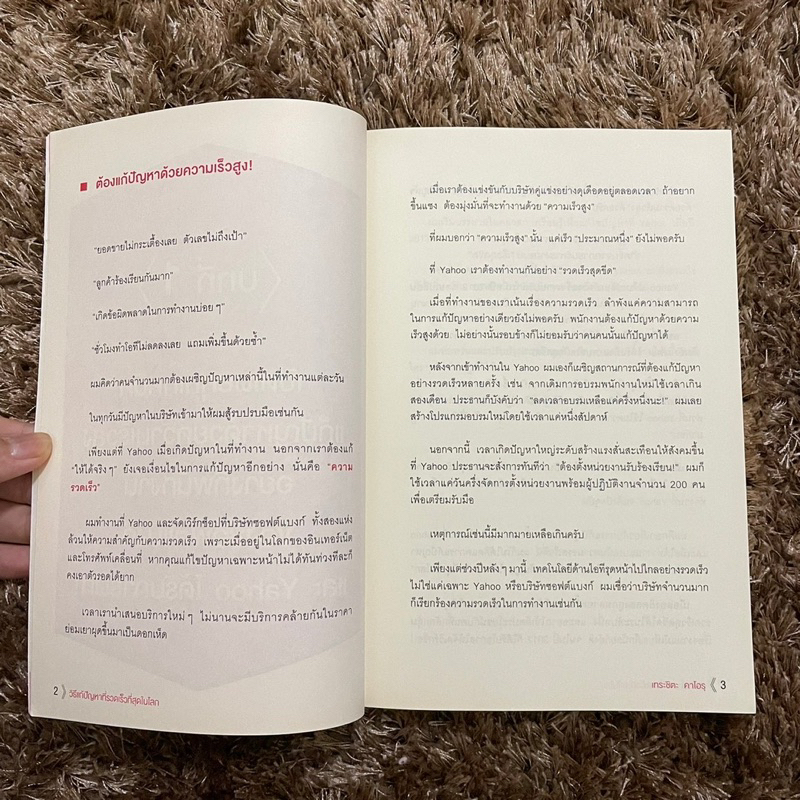 ต้องแก้ปัญหาด้วยความเร็วสูง!
"ยอดขายไม่กระเตื้องเลย ตัวเลขไม่ถึงเป้า"
"ลูกค้าร้องเรียนกันมาก"
"เกิดข้อผิดพลาดในการทำงานบ่อยๆ"
"ชั่วโมงทำโอทีไม่ลดลงเลย แถมเพิ่มขึ้นด้วยซ้ำ"
ผมคิดว่าคนจำนวนมากต้องเผชิญปัญหาเหล่านี้ในที่ทำงานแต่ละวัน
ในทุกวันมีปัญหาในบริษัทเข้ามาให้ผมสู้รบปรบมือเช่นกัน
เพียงแต่ที่ Yahoo เมื่อเกิดปัญหาในที่ทำงาน นอกจากเราต้องแก้
"ให้ได้จริงๆ" ยังเจอเงื่อนไขในการแก้ปัญหาอีกอย่าง นั่นคือ "ความ
รวดเร็ว"
ผมทำงานที่ Yahoo และจัดเวิร์กช็อปที่บริษัทซอฟต์แบงก์ ทั้งสองแห่ง
ล้วนให้ความสำคัญกับความรวดเร็ว เพราะเมื่ออยู่ในโลกของอินเทอร์เน็ต
และโทรศัพท์เคลื่อนที่ หากคุณแก้ไขปัญหาเฉพาะหน้าไม่ได้ทันท่วงทีละก็
คงเอาตัวรอดได้ยาก
เวลาเรานำเสนอบริการใหม่ๆ ไม่นานจะมีบริการคล้ายกันในราคา
ย่อมเยาผุดขึ้นมาเป็นดอกเห็ด
2 》 วิธีแก้ปัญหาที่รวดเร็วที่สุดในโลก
เมื่อเราต้องแข่งขันกับบริษัทคู่แข่งอย่างดุเดือดอยู่ตลอดเวลา ถ้าอยาก
ขึ้นแซง ต้องมุ่งมั่นที่จะทำงานด้วย "ความเร็วสูง"
ที่ผมบอกว่า "ความเร็วสูง" นั้น แค่เร็ว "ประมาณหนึ่ง" ยังไม่พอครับ
ที่ Yahoo เราต้องทำงานกันอย่าง "รวดเร็วสุดขีด"
เมื่อที่ทำงานของเราเน้นเรื่องความรวดเร็ว ลำพังแค่ความสามารถ
ในการแก้ปัญหาอย่างเดียวยังไม่พอครับ พนักงานต้องแก้ปัญหาด้วยความ
เร็วสูงด้วย ไม่อย่างนั้นรอบข้างก็ไม่ยอมรับว่าคนคนนั้นแก้ปัญหาได้
หลังจากเข้าทำงานใน Yahoo ผมเองก็เผชิญสถานการณ์ที่ต้องแก้ปัญหา
อย่างรวดเร็วหลายครั้ง เช่น จากเดิมการอบรมพนักงานใหม่ใช้เวลาเกิน
สองเดือน ประธานก็บังคับว่า "ลดเวลาอบรมเหลือแค่ครึ่งหนึ่งนะ!" ผมเลย
สร้างโปรแกรมอบรมใหม่โดยใช้เวลาแค่หนึ่งสัปดาห์
นอกจากนี้ เวลาเกิดปัญหาใหญ่ระดับสร้างแรงสั่นสะเทือนให้สังคมขึ้น
ที่ Yahoo ประธานจะสั่งการทันทีว่า "ต้องตั้งหน่วยงานรับร้องเรียน!" ผมก็
ใช้เวลาแค่วันครึ่งจัดการตั้งหน่วยงานพร้อมผู้ปฏิบัติงานจำนวน 200 คน
เพื่อเตรียมรับมือ
เหตุการณ์เช่นนี้มีมากมายเหลือเกินครับ
เพียงแต่ช่วงปีหลังๆ มานี้ เทคโนโลยีด้านไอทีรุดหน้าไปไกลอย่างรวดเร็ว
ไม่ใช่แค่เฉพาะ Yahoo หรือบริษัทซอฟต์แบงก์ ผมเชื่อว่าบริษัทจำนวนมาก
ก็เรียกร้องความรวดเร็วในการทำงานเช่นกัน
เทระชิตะ คาโอรุ 《 3